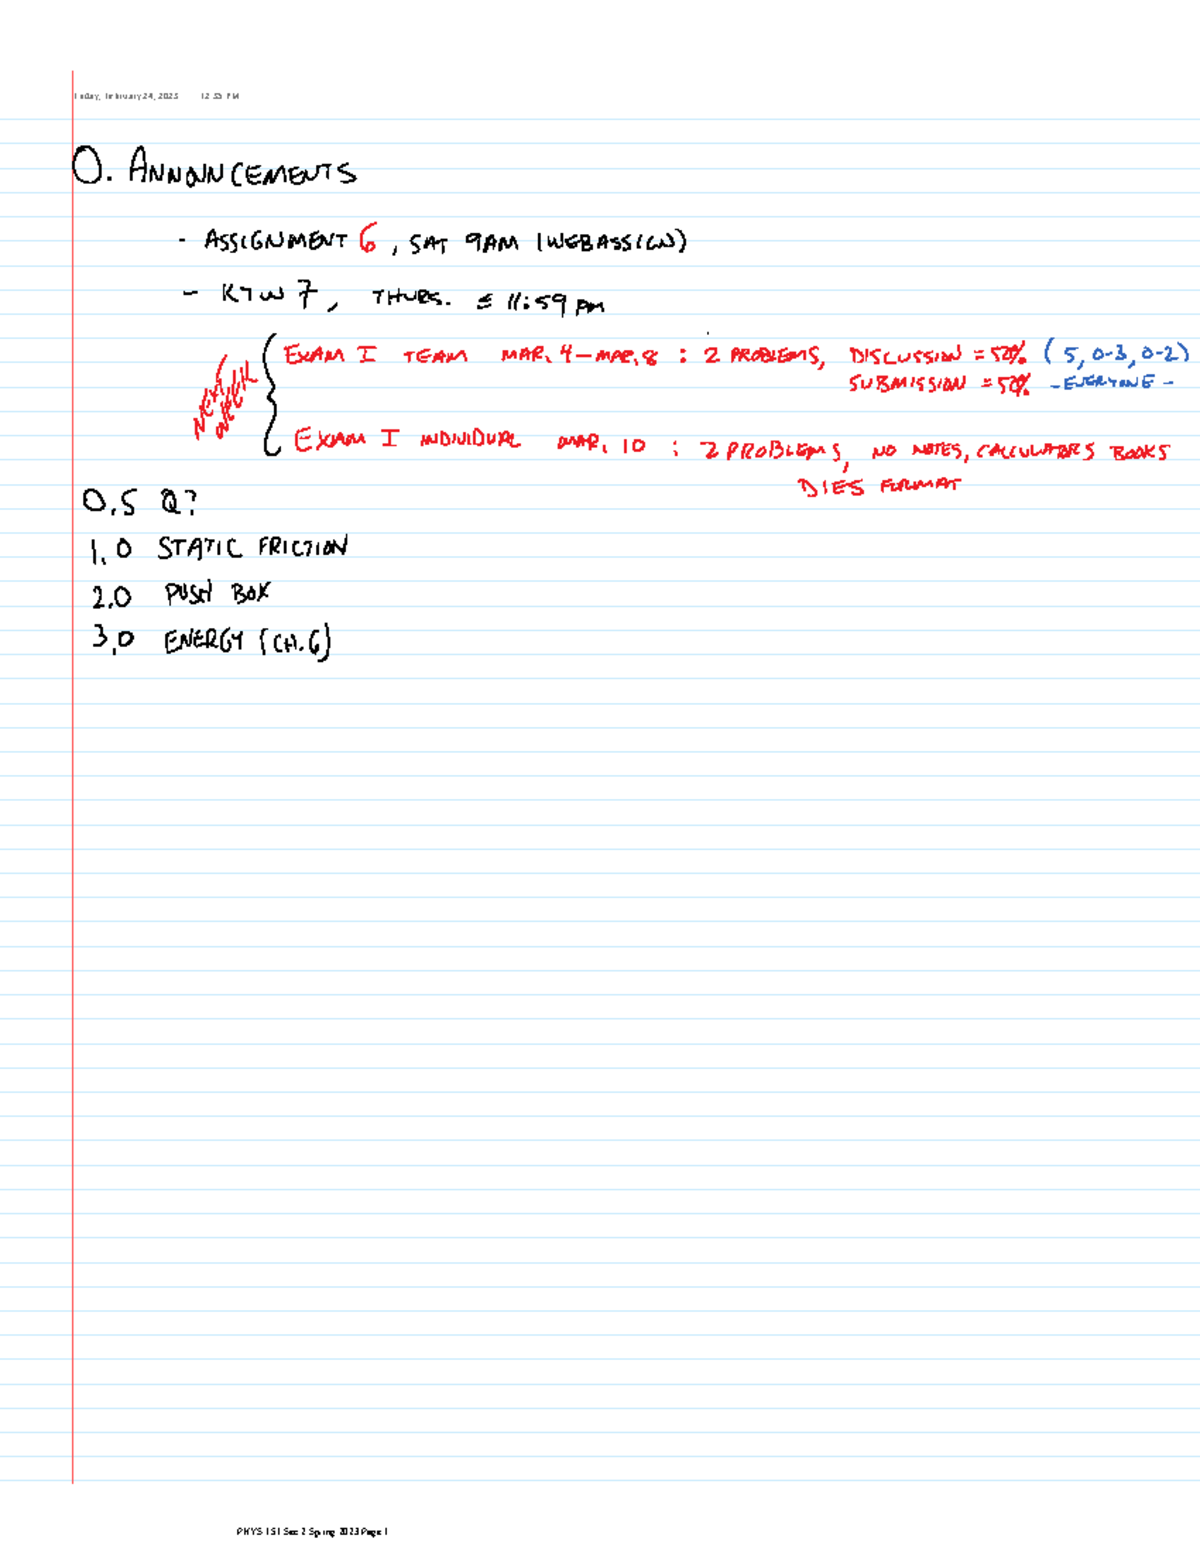 Friday, February 24, 2023 12:55 PM
0. ANNOUNCEMENTS
- ASSIGNMENT 6, SAT 9AM (WEBASSIGN)
- KTW 7, THURS. ≤ 11:59 PM
NEXT WEEK
EXAM I TEAM MAR. 4-MAR. 8 : 2 PROBLEMS, DISCUSSION = 50% (5, 0-3, 0-2)
SUBMISSION = 50% -EVERYONE-
EXAM I INDIVIDUAL MAR. 10 : 2 PROBLEMS, NO NOTES, CALCULATORS BOOKS
DIES FORMAT
0.5 Q?
1.0 STATIC FRICTION
2.0 PUSH BOX
3.0 ENERGY (CH.6)
PHYS 151 Sec 2 Spring 2023 Page 1